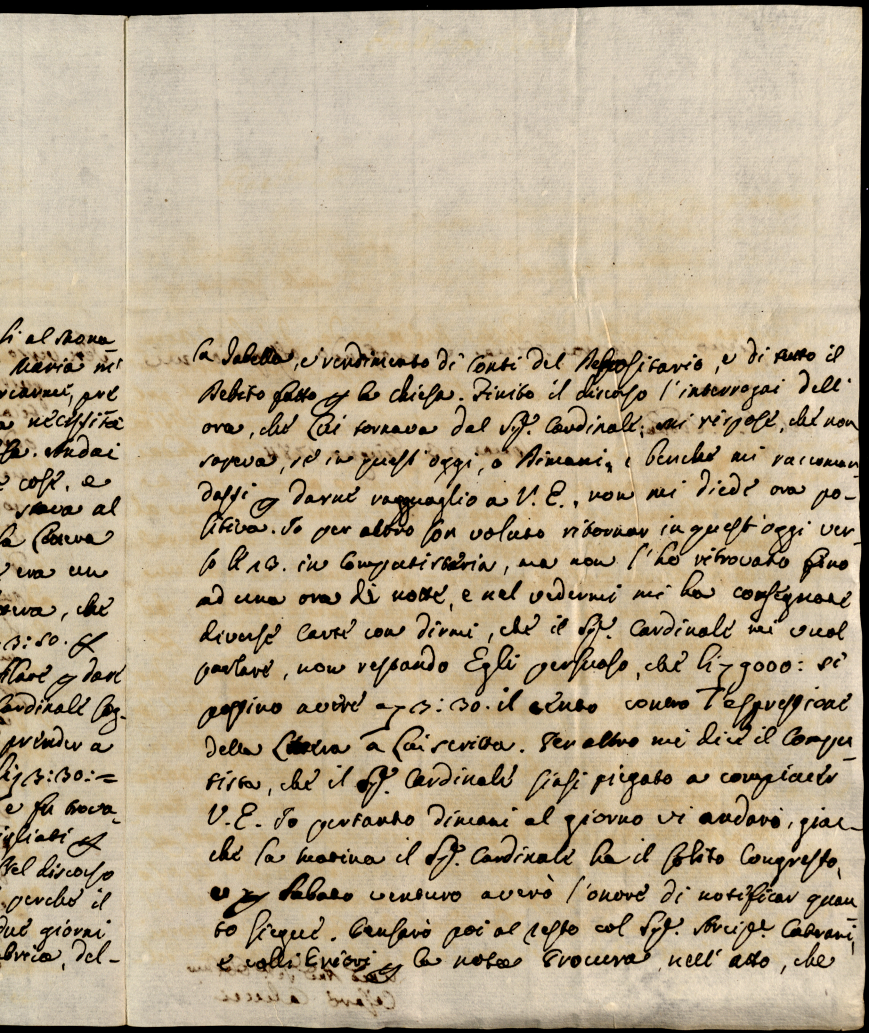 li al Mona-
Maria mi
a necessità
Andai
e cose, e
stava al
la Lettera
era un
che
3:50. p
p dare
Cardinale
prender a
3:30:=
e fu trova-
del discorso
perchè il
due giorni
del-
la Tabella, e rendimento di Conti del Depositario, e di tutto il
Debito fatto p la chiesa. Finito il discorso l'interrogai dell'
ora, che Lui tornava dal Sig.r Cardinale; mi rispose, che non
sapeva, se in quest'oggi, o Dimani, e benchè mi raccoman
dassi p darne ragguaglio a V. E., non mi diede ora po-
sitiva. Io per altro son voluto ritornar in quest'oggi ver-
so le 23. in Computistaria, ma non l'hò ritrovato fino
ad una ora di notte, e nel vedermi mi ha consegnate
diverse Carte con dirmi, che il Sig.r Cardinale mi vuol
parlare, non restando Egli persuaso, che li 9000: si
possino avere a 3:30. il cento contro l'espressione
della Lettera a Lui scritta. Per altro mi dice il Compu-
tista, che il Sig.r Cardinale siasi piegato a compiacer
V. E. Io pertanto dimani al giorno vi andarò, giac-
chè la matina il Sig.r Cardinale ha il solito Congresso,
e p Sabato venturo averò l'onore di notificar quan
to siegue. Pensarò poi al resto col Sig.r Arcip.e
e colli Priori p la nota Procura, nell'atto, che